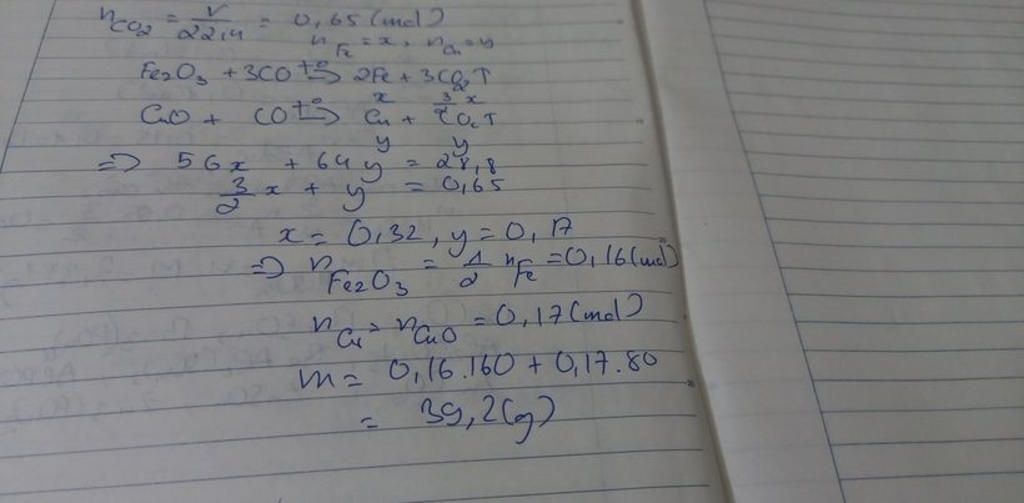 nCO2 = V/22,4 = 0,65 (mol)
nFe = x, nCu = y
Fe2O3 + 3CO t° → 2Fe + 3CO2↑
x 3/2 x
CuO + CO t° → Cu + CO2↑
y y
=> 56x + 64y = 28,8
3/2 x + y = 0,65
x = 0,32, y = 0,17
=> nFe2O3 = 1/2 nFe = 0,16 (mol)
nCu = nCuO = 0,17 (mol)
m = 0,16.160 + 0,17.80
= 39,2 (g)